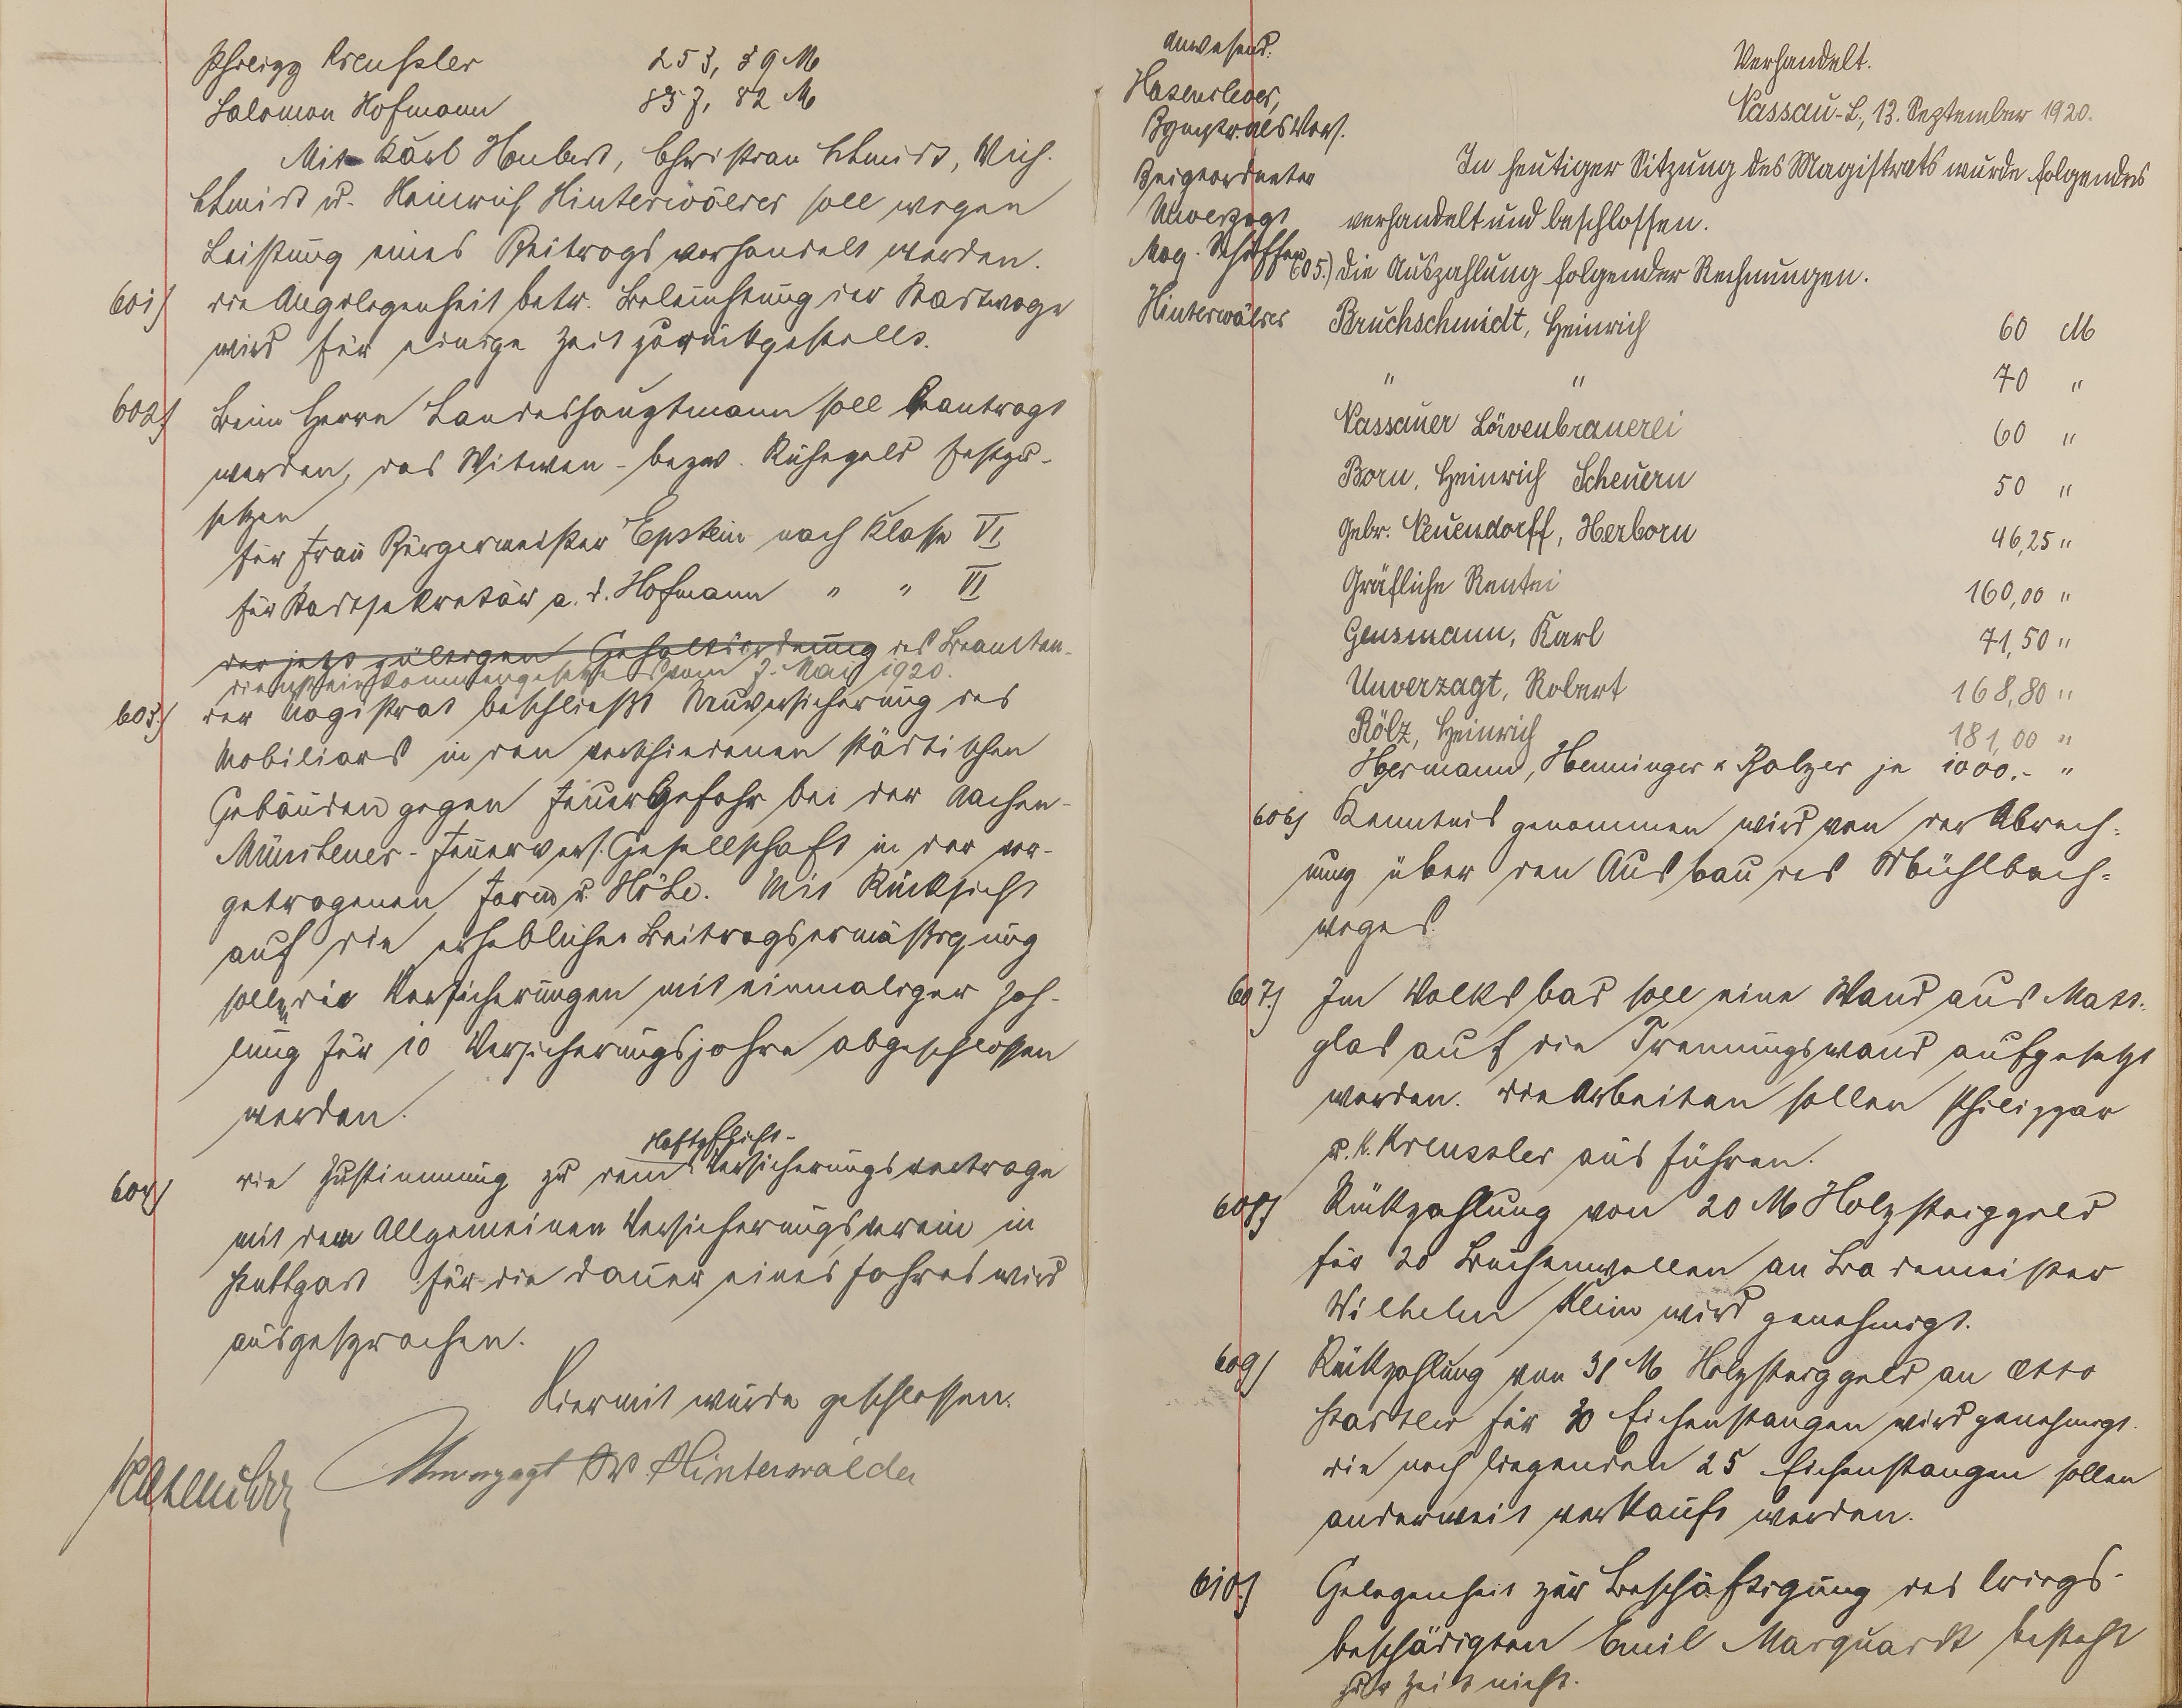 Philipp Kreussler 253, 39 M
Salomon Hofmann 857, 82 M
Mit Karl Haubert, Christian Schmidt, Wilh.
Schmidt u. Heinrich Hinterwälder soll wegen
Leistung eines Beitrags verhandelt werden.
601) Die Angelegenheit betr. Beleuchtung der Stadtwage
wird für einige Zeit zurückgestellt.
602) Beim Herrn Landeshauptmann soll beantragt
werden, das Witwen- bezw. Ruhegeld festzu-
setzen
für Frau Bürgermeister Epstein nach Klasse VI
für Stadtsekretär a. D. Hofmann " " VI
der jetzt gültigen Gehaltsordnung des Beamten-
diensteinkommengesetzes vom 7. Mai 1920.
603) Der Magistrat beschließt Neuversicherung des
Mobiliars in den verschiedenen städtischen
Gebäuden gegen Feuergefahr bei der Aachen-
Münchener-Feuervers. Gesellschaft in der vor-
getragenen Form u. Höhe. Mit Rücksicht
auf die erhebliche Beitragsermäßigung
sollen die Versicherungen mit einmaliger Zah-
lung für 10 Versicherungsjahre abgeschlossen
werden.
Haftpflicht-
604) Die Zustimmung zu dem Versicherungsvertrage
mit dem Allgemeinen Versicherungsverein in
Stuttgart für die Dauer eines Jahres wird
ausgesprochen.
Hiermit wurde geschlossen.
Hasenclever Unverzagt W Hinterwälder
Anwesend:
Hasenclever,
Bgmstr. als Vors.
Beigeordneter
Unverzagt
Mag. Schöffen
Hinterwälder
Verhandelt.
Nassau-L., 13. September 1920.
In heutiger Sitzung des Magistrats wurde folgendes
verhandelt und beschlossen.
605.) Die Auszahlung folgender Rechnungen.
Bruchschmidt, Heinrich 60 M
" " 70 "
Nassauer Löwenbrauerei 60 "
Born, Heinrich Scheuern 50 "
Gebr. Neuendorff, Herborn 46,25 "
Gräfliche Rentei 160,00 "
Gensmann, Karl 71,50 "
Unverzagt, Robert 168,80 "
Rölz, Heinrich 181,00 "
Hermann, Henninger u Balzer je 1000.- "
606) Kenntnis genommen wird von der Abrech-
nung über den Ausbau des Mühlbach-
weges.
607.) Im Volksbad soll eine Wand aus Matt-
glas auf die Trennungswand aufgesetzt
werden. Die Arbeiten sollen Philippar
u. K. Kreussler ausführen.
608.) Rückzahlung von 20 M Holzsteiggeld
für 20 Buchenwellen an Bademeister
Wilhelm Klein wird genehmigt.
609) Rückzahlung von 31 M Holzsteiggeld an Otto
für 30 Eichenstangen wird genehmigt.
Die noch liegenden 25 Eichenstangen sollen
anderweit verkauft werden.
610.) Gelegenheit zur Beschäftigung des Kriegs-
beschädigten Emil Marquardt besteht
zur Zeit nicht.